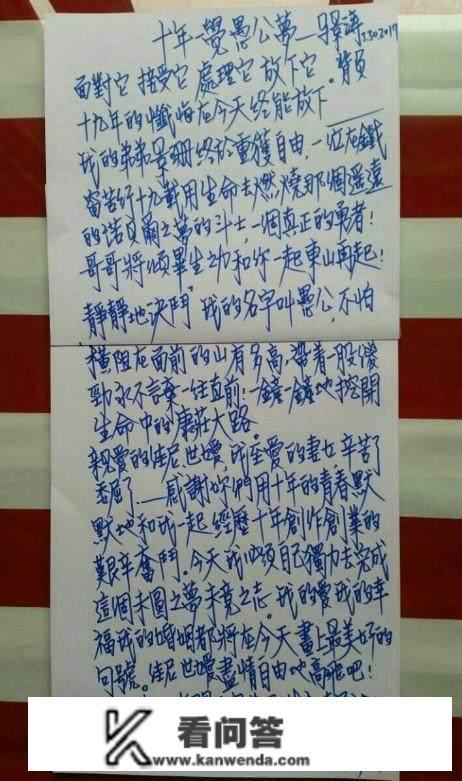 十年一覺愚公夢—驛濤 3302017
面對它 接受它 處理它 放下它。背負
十九年的懺悔在今天终能放下——
我的弟弟景珊终於重獲自由,一位在鐵
窗苦行十九載用生命去燃燒那個遥遠
的諾貝爾之夢的斗士,一個真正的勇者!
哥哥將傾畢生之力和你一起東山再起!
靜靜地決鬥 我的名字叫愚公,不怕
橫阻在面前的山有多高,帶着一股傻
勁永不言棄一往直前!一鏟一鏟地挖開
生命中的康莊大路。
親愛的佳尼,世嬡,我至愛的妻女,辛苦了
委屈了——感謝你們用十年的青春默
默地和我一起 經歷十年創作創業的
艱辛奮鬥。今天我必須自己獨力去完成
這個未圓之夢未竟之志。我的愛我的幸
福我的婚姻都將在今天畫上最美好的
句號。佳尼世嬡盡情自由地高飛吧!
看问答
www.kanwenda.com